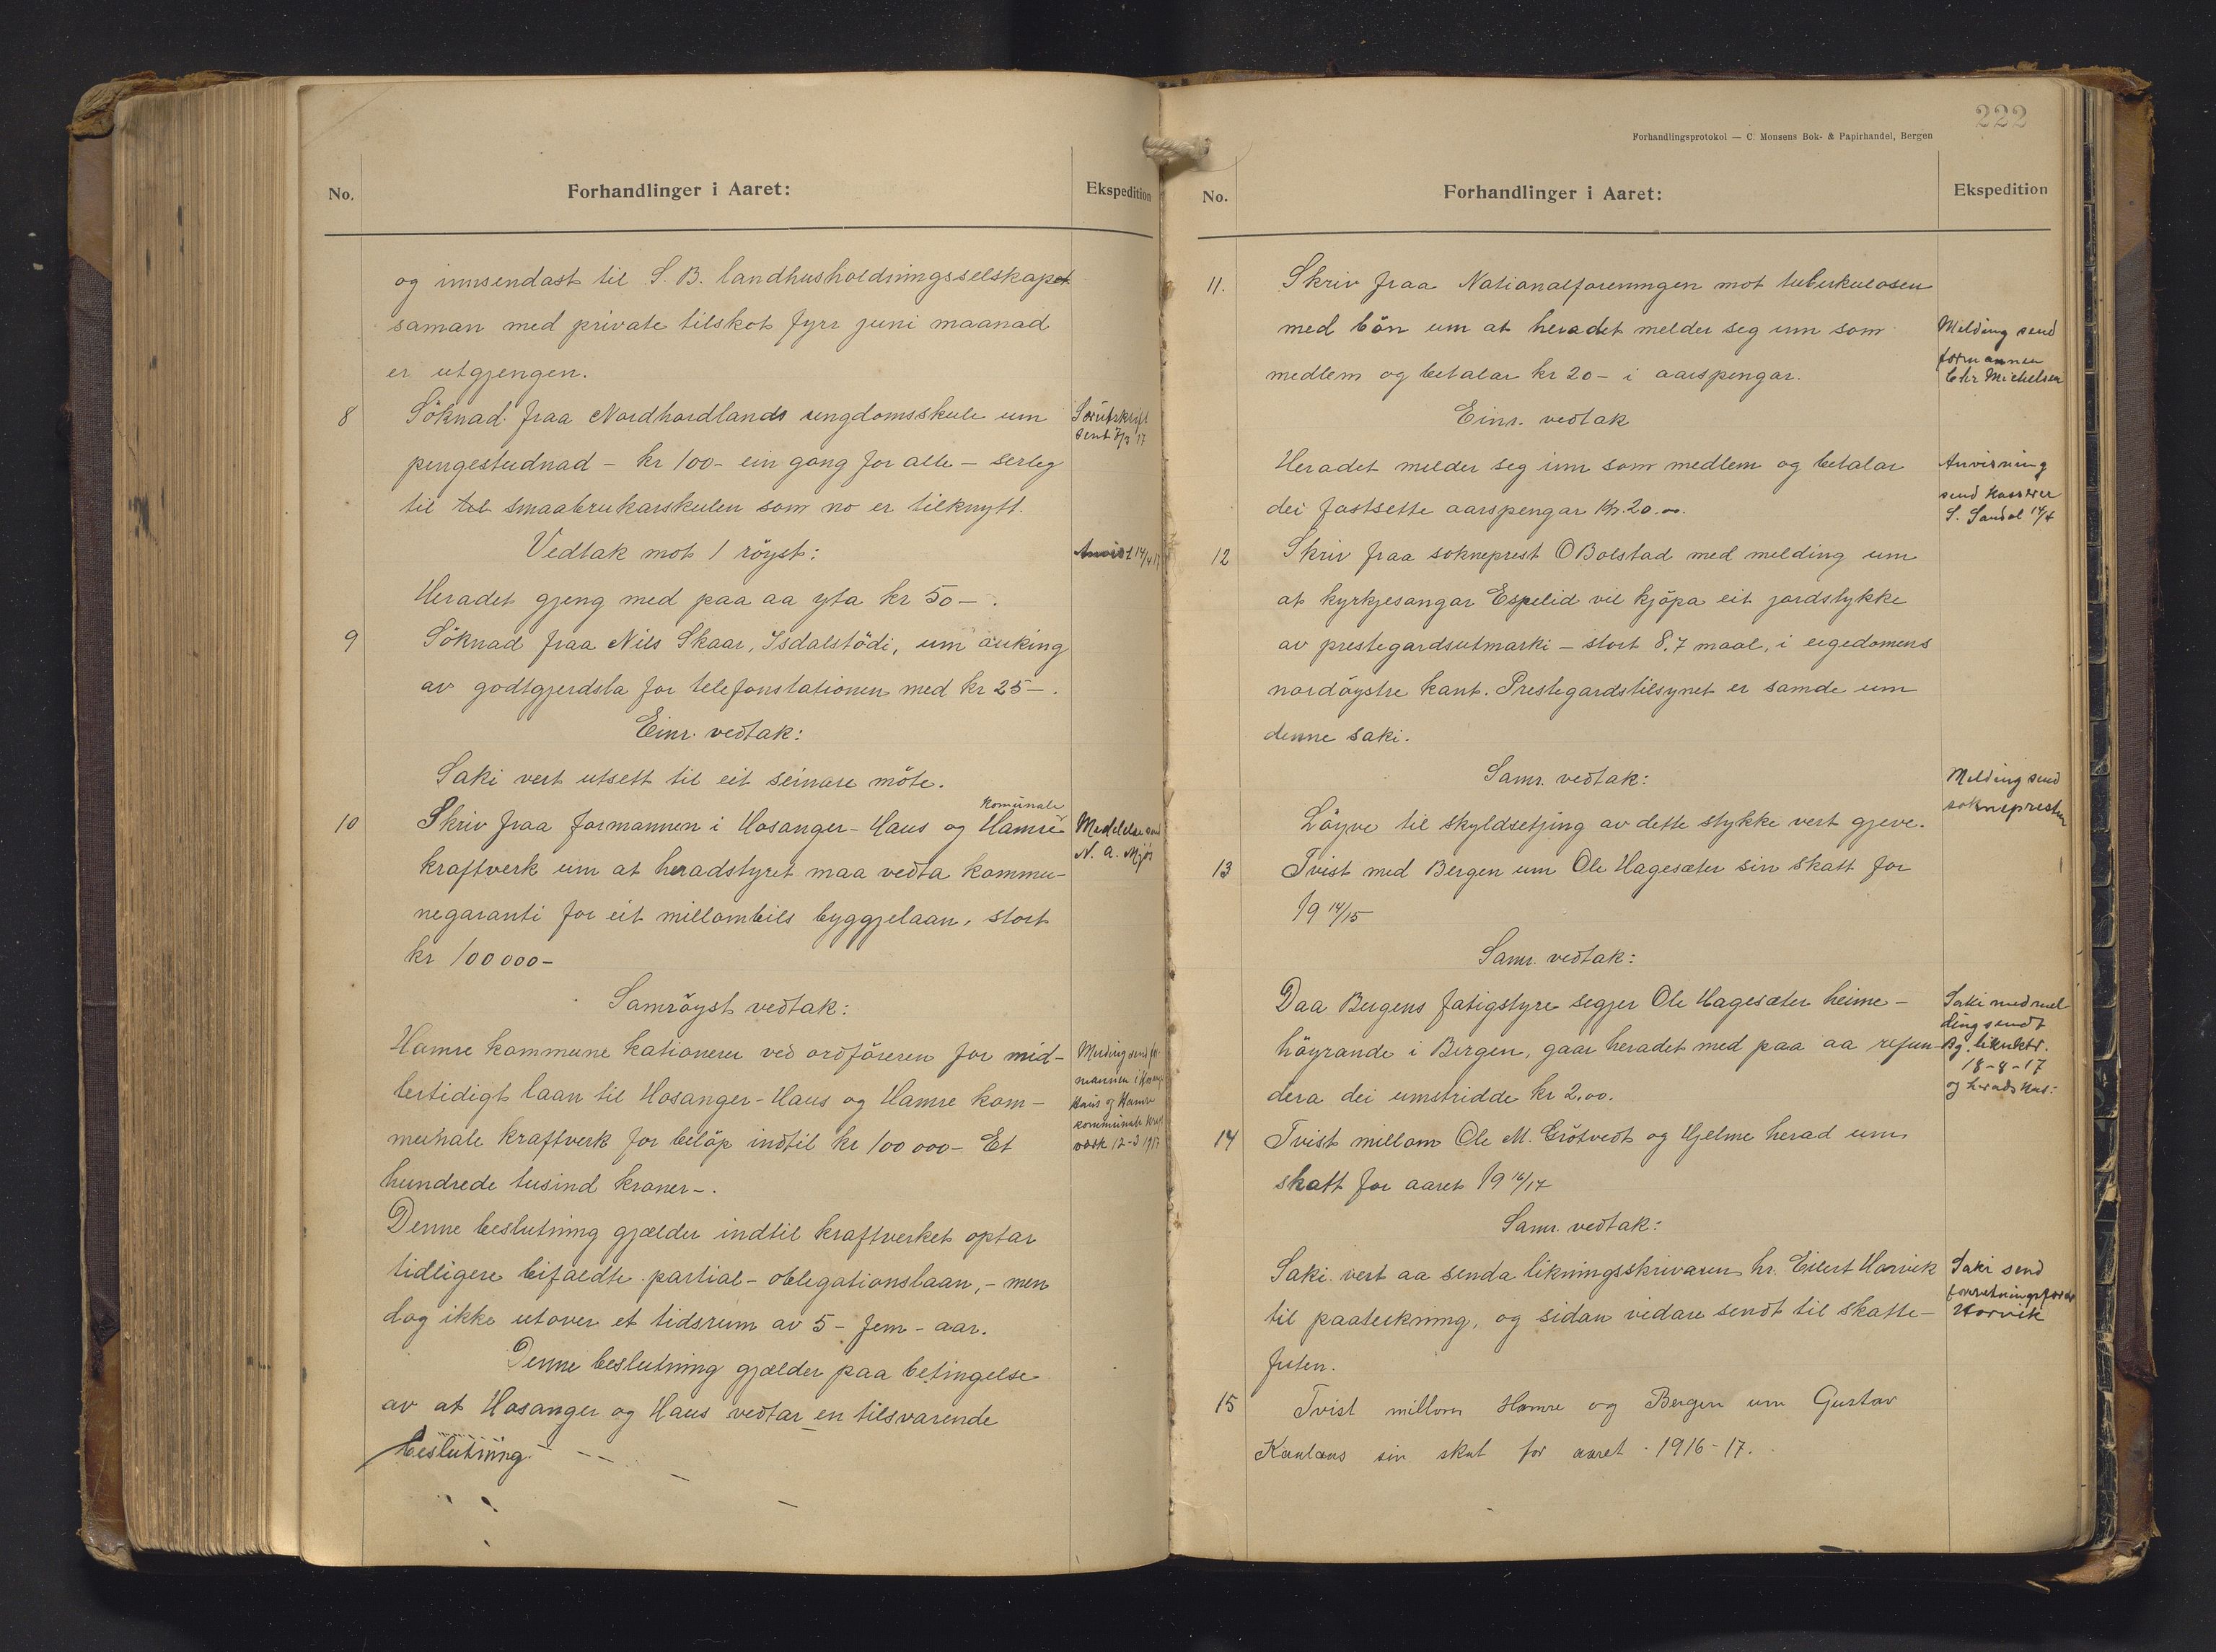 No.
Forhandlinger i Aaret:
Ekspedition
og innsendast til S. B. landhusholdningsselskapet
saman med private tilskot fyrr juni maanad
er utgjengen.
8 Söknad fraa Nordhordlands ungdomsskule um
Særutskrift
sent 7/3 17
pengestudnad - kr 100- ein gong for alle - serleg
til til smaabrukarskulen som no er tilknytt.
Vedtak mot 1 röyst:
Anvist 14/4 17
Heradet gjeng med paa aa yta kr 50-.
9 Söknad fraa Nils Skaar, Isdalstödi, um auking
av godtgjerdsla for telefonstationen med kr 25-.
Einr. vedtak:
Saki vert utsett til eit seinare möte.
komunale
10 Skriv fraa formannen i Hosanger-Haus og Hamre
Meddelse send
N. A. Mjös
kraftverk um at heradstyret maa vedta kommu-
negaranti for eit millombils byggjelaan, stort
kr 100000-
Samröyst vedtak:
Hamre kommune kationerer ved ordföreren for mid-
Melding send for-
mannen i Hosang
Haus og Hamre
kommunale kraft
værk 12-3 1917
lertidigt laan til Hosanger-Haus og Hamre kom-
munale kraftverk for belöp indtil kr 100 000- Et
hundrede tusind kroner-.
Denne beslutning gjælder indtil kraftverket optar
tidligere bifaldte partial-oblegationslaan,- men
dog ikke utover et tidsrum av 5- fem- aar.
Denne beslutning gjælder paa betingelse
av at Hosanger og Haus vedtar en tilsvarende
beslutning.
222
Forhandlingsprotokol — C. Monsens Bok- & Papirhandel, Bergen
No.
Forhandlinger i Aaret:
Ekspedition
11. Skriv fraa Nationalforeningen mot tuberkulosen
med bön um at heradet melder seg inn som
Melding send
formannen
Chr Michelsen
medlem og betalar kr 20- i aarspengar.
Einr. vedtak
Heradet melder seg inn som medlem og betalar
Anvisning
send kasserer
S. Sandal 14/4
dei fastsette aarspengar Kr. 20.00.
12 Skriv fraa sokneprest O Bolstad med melding um
at kyrkjesangar Espelid vil kjöpa eit jordstykke
av prestegardsutmarki - stort 8,7 maal, i eigedomens
nordöystre kant. Prestegardstilsynet er samde um
denne saki.
Samr. vedtak:
Melding send
soknepresten
Löyve til skyldsetjing av dette stykke vert gjeve.
13 Tvist med Bergen um Ole Hagesæter sin skatt for
19 14/15
Samr. vedtak:
Daa Bergens fatigstyre segjer Ole Hagesæter heime-
Saki med mel
ding sendt
Bg. liknktr.
18-8-17
og herads kas:
höyrande i Bergen, gaar heradet med paa aa refun-
dera dei umstridde kr 2,00.
14 Tvist millom Ole M. Grötvedt og Hjelme herad um
skatt for aaret 19 16/17
Samr. vedtak:
Saki vert aa senda likningsskrivaren hr. Eilert Horvik
Saki send
forretningsförer
Horvik
til paateikning, og sidan vidare sendt til skatte-
futen.
15 Tvist millom Hamre og Bergen um Gustav
Kaulaas sin skat for aaret 1916-17.